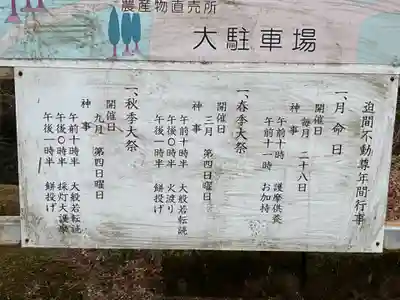 農産物直売所
大駐車場
迫間不動尊年間行事
一、月命日
開催日
毎月 二十八日
神事
午前十時 護摩供養
午前十一時 お加持
一、春季大祭
開催日
三月 第四日曜日
神事
午前十時半 大般若転読
午後〇時半 火渡り
午後一時半 餅投げ
一、秋季大祭
開催日
九月 第四日曜日
神事
午前十時半 大般若転読
午後〇時半 採灯大護摩
午後一時半 餅投げ